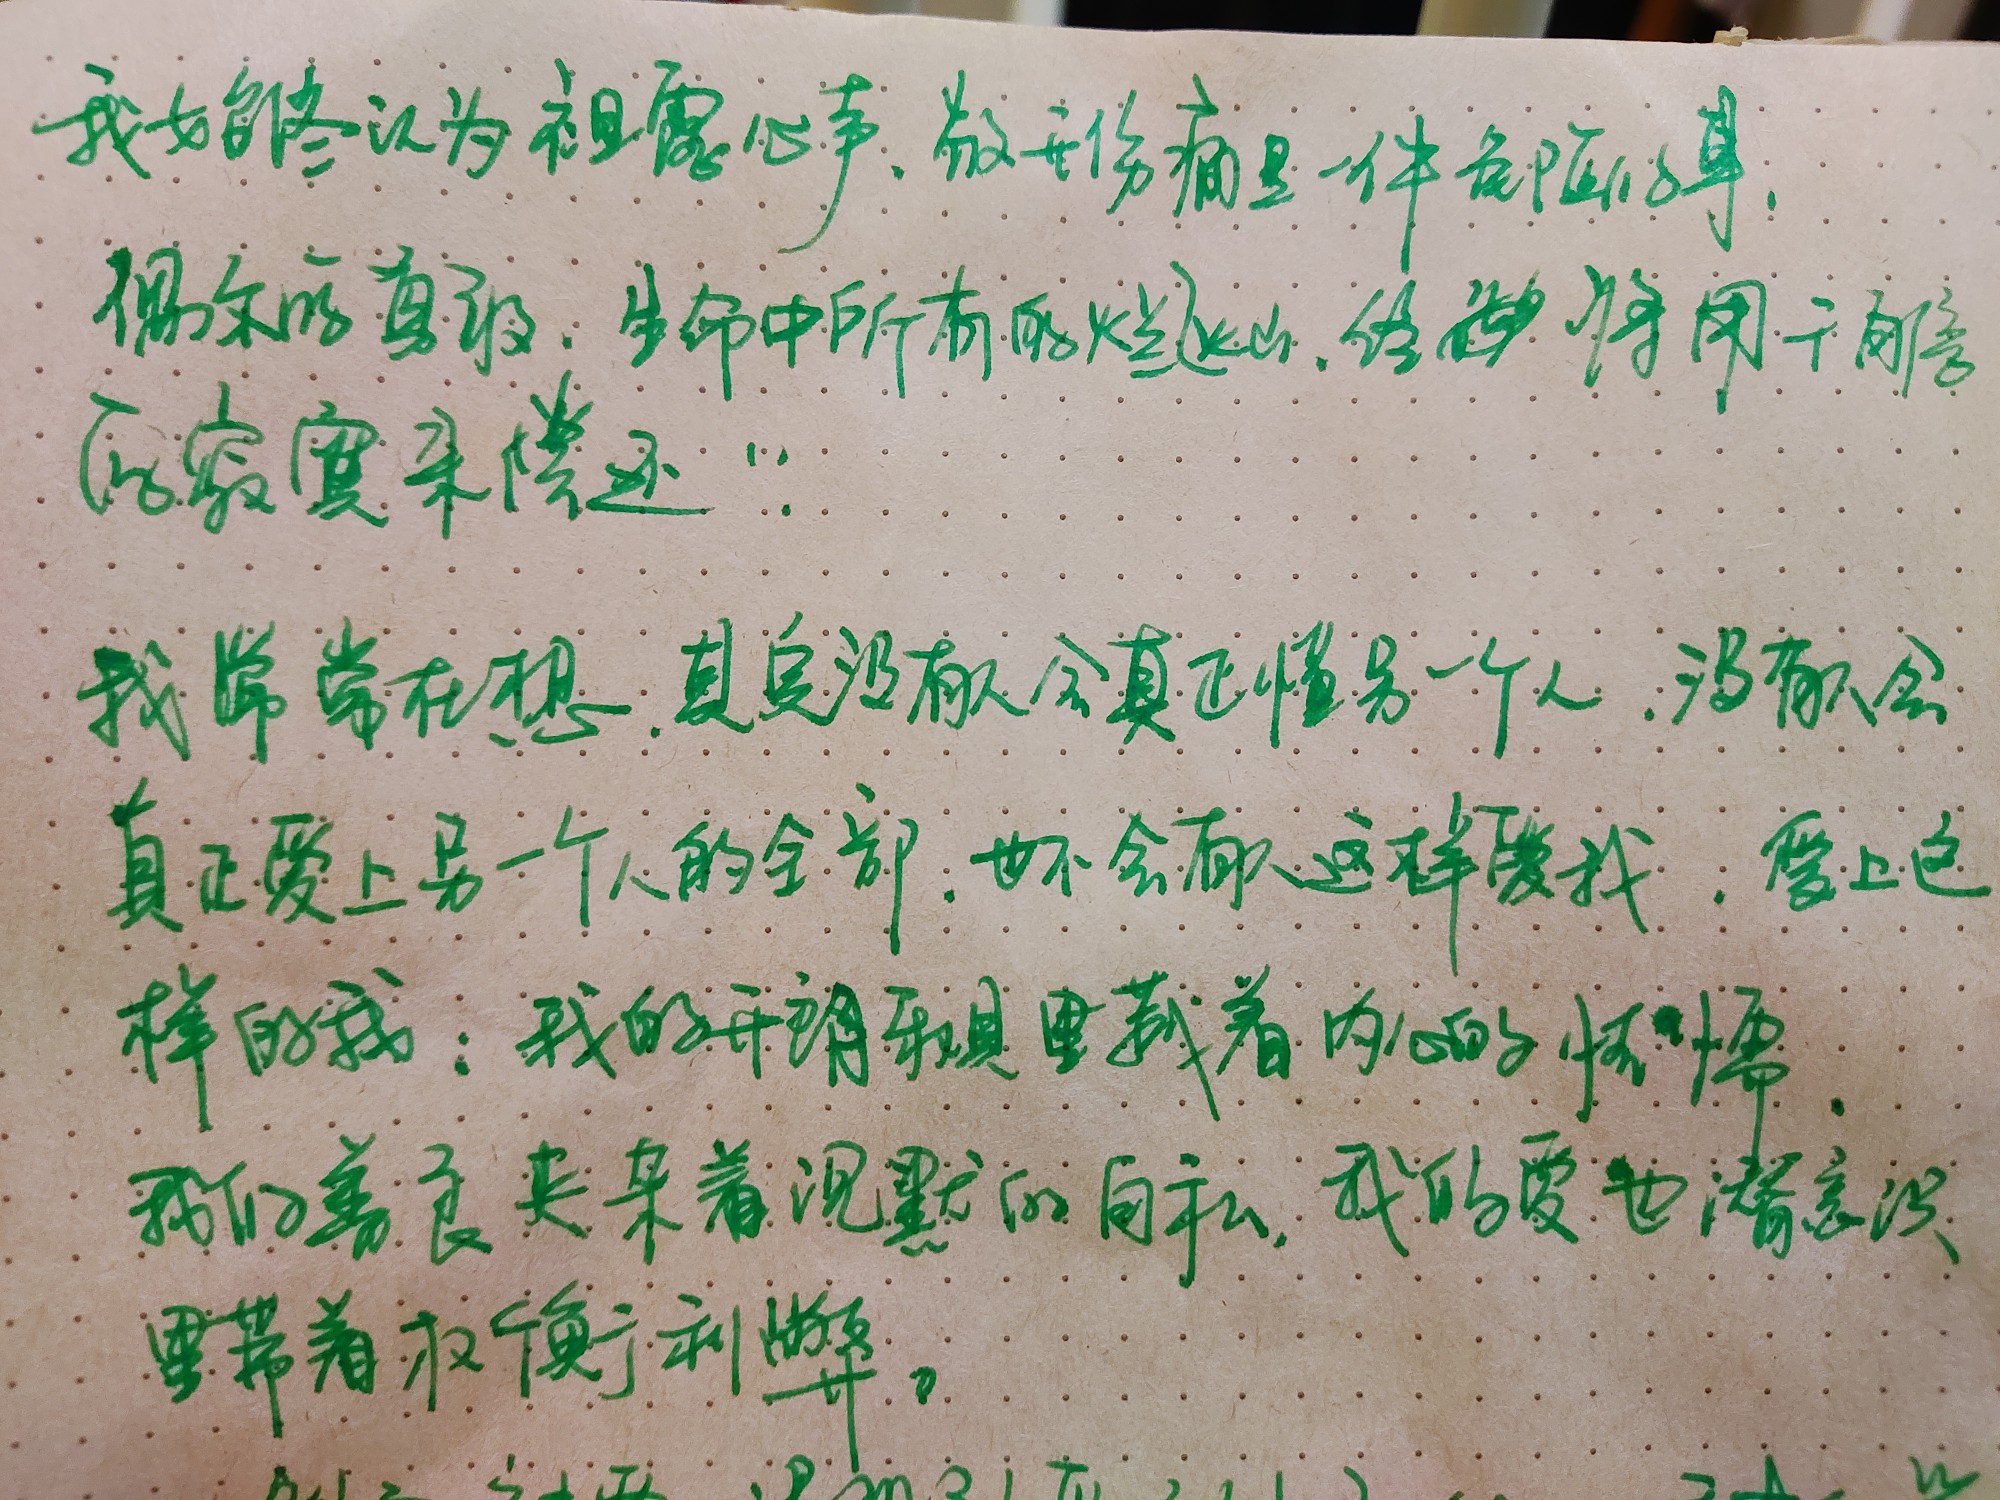 我始终认为袒露心声、敞开伤痛是一件危险的事,
偶尔的勇敢,生命中所有的灿烂,终 将用
的寂寞来偿还……
我常常在想,其实没有人会真正懂另一个人,没有人会
真正爱上另一个人的全部,也不会有人这样爱我,爱上这
样的我:我的开朗 里藏着内心的怯懦,
我的善良夹杂着沉默的自私,我的爱也潜意识
里带着权衡利弊。